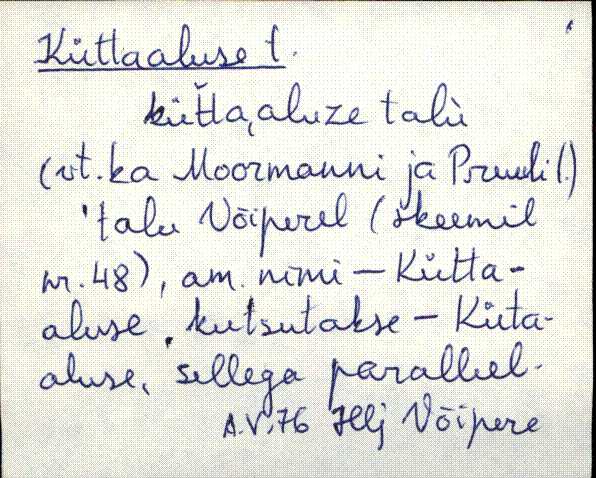 Küttaaluse t.
küt̆ta,aluze talù
(vt. ka Moormanni ja Pruuli t.)
'talu Võiperel (skeemil
nr. 48), am. nimi – Kütta-
aluse, kutsutakse – Küta-
aluse, sellega paralleel-
A.V. 76 Hlj Võipere